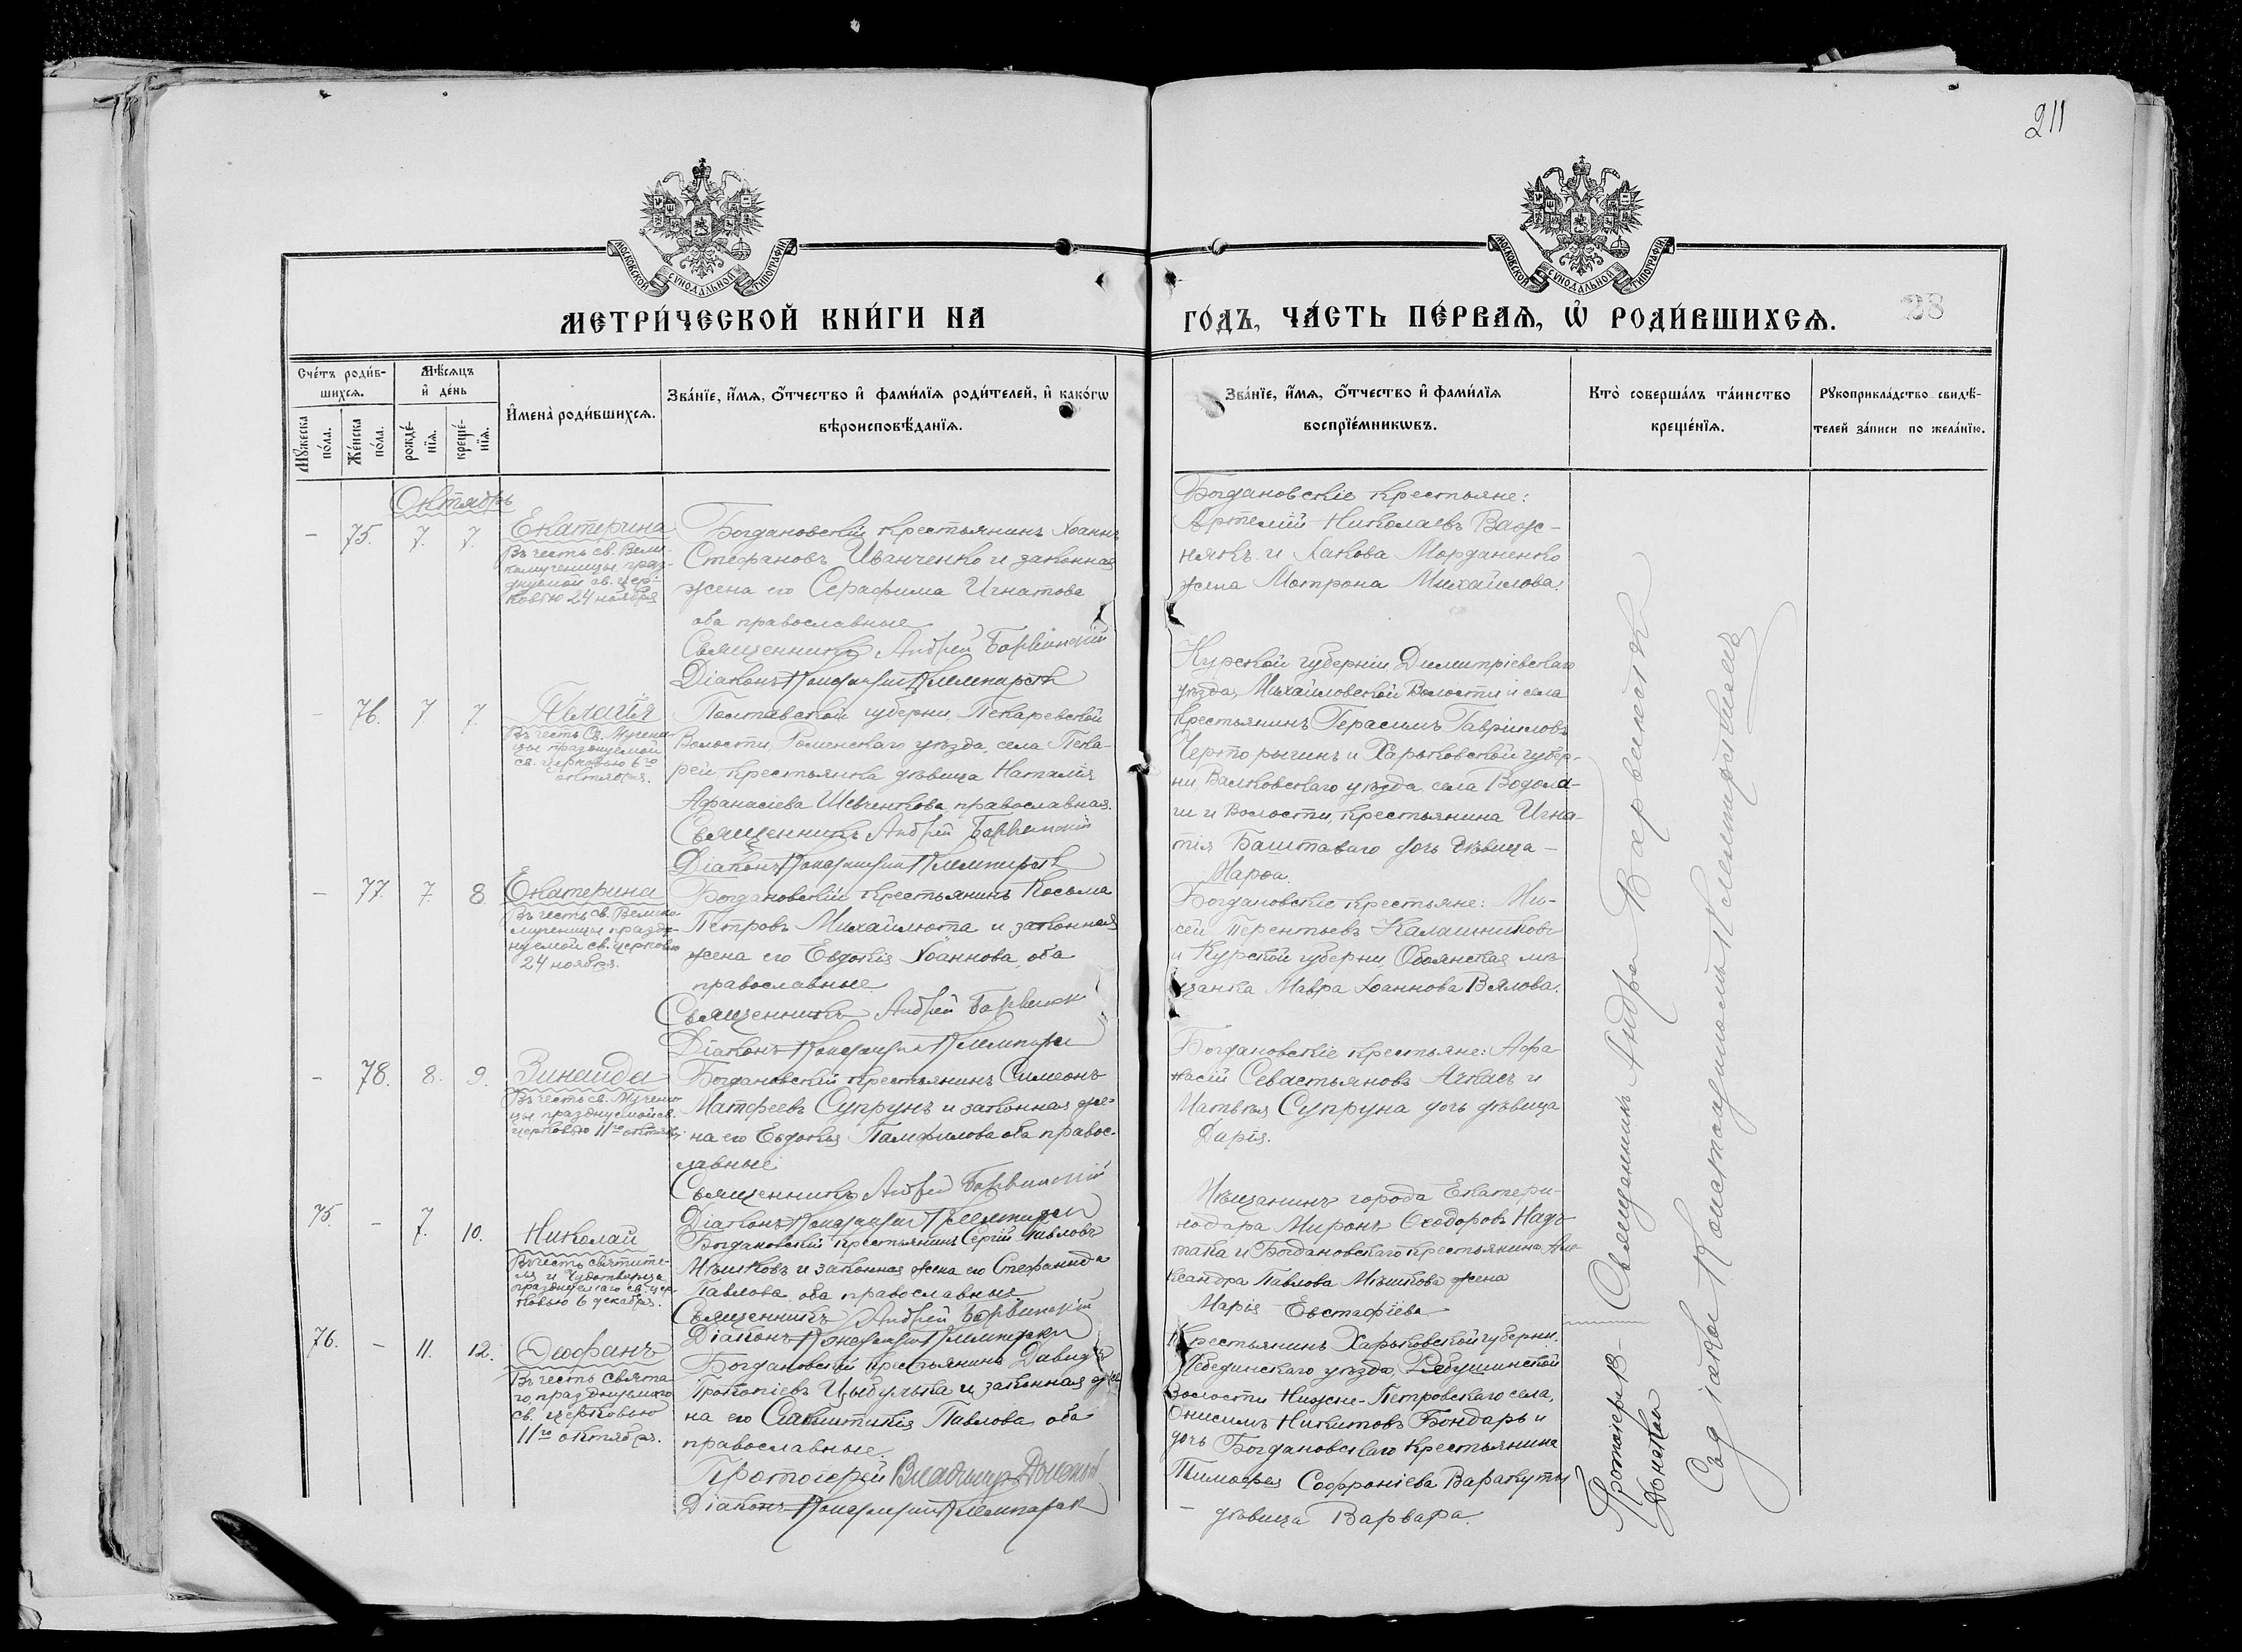 211
МОСКОВСКОЙ СѴНОДАЛЬНОЙ ТИПОГРАФІИ
МОСКОВСКОЙ СѴНОДАЛЬНОЙ ТИПОГРАФІИ
МЕТРИ́ЧЕСКОЙ КНИ́ГИ НА
ГО́ДЪ, ЧА́СТЬ ПЕ́РВАѦ, Ѽ РОДИ́ВШИХСѦ.
38
Сче́тъ роди́в-
шихсѧ.
Мꙋ́жеска по́ла.
Же́нска по́ла.
Мѣ́сѧцъ
и҆ де́нь
рожде́-
нїѧ.
креще́-
нїѧ.
И҆мена̀ роди́вшихсѧ.
Зва́нїе, и҆́мѧ, ѻ҆́тчество и҆ фами́лїѧ роди́телей, и҆ како́гѡ
вѣроисповѣ́данїѧ.
Зва́нїе, и҆́мѧ, ѻ҆́тчество и҆ фами́лїѧ
воспрїе́мникѡвъ.
Кто̀ соверша́лъ та́инство
креще́нїѧ.
Рꙋкоприкла́дство свидѣ́-
телей за́писи по жела́нїю.
Октябрь
— 75. 7. 7. Екатерина
Въ честь св. Вели-
комученицы, праз-
днуемой св. цер-
ковью 24 ноября
Богдановскій крестьянинъ Іоаннъ
Стефановъ Иванченко и законная
жена его Серафима Игнатова
оба православные
Священникъ Андрей Барвинскій
Діаконъ Константинъ
Богдановскіе крестьяне:
Артемій Николаевъ Важ-
някъ и Іакова Морданенко
жена Мотрона Михайлова.
— 76. 7 7. Пелагія
Въ честь Св. Мучени-
цы празднуемой
св. церковью 6го
октября.
Полтавской губерніи, Пекаревской
Волости, Роменскаго уѣзда, села Пека-
рей, крестьянка дѣвица Наталія
Афанасіева Шевченкова православная.
Священникъ Андрей Барвинскій
Діаконъ Константинъ
Курской губерніи Димитріевскаго
уѣзда, Михайловской Волости и села
крестьянинъ Герасимъ Гавриловъ
Черторыгинъ и Харьковской губер-
ніи, Валковскаго уѣзда, села Водола-
ги и Волости, крестьянина Игна-
тія Баштаваго дочь дѣвица —
Марѳа.
— 77. 7. 8. Екатерина
Въ честь св. Велико-
мученицы праздн-
нуемой св. церковью
24 ноября.
Богдановскій крестьянинъ Косьма
Петровъ Михайлюта и законная
жена его Евдокія Іоаннова, оба
православные
Священникъ Андрей
Діаконъ Константинъ
Богдановскіе крестьяне: Ми-
сей Терентьевъ Калашниковъ
и Курской губерніи Обоянская мѣ-
щанка Мавра Іоаннова Вялова.
— 78. 8. 9. Зинаида
Въ честь св. Мучени-
цы празднуемой св.
церковью 11го октяб.
Богдановскій крестьянинъ Симеонъ
Матфеевъ Супрунъ и законная же-
на его Евдокія Памфилова оба правос-
лавные
Священникъ Андрей Барвинскій
Діаконъ Константинъ
Богдановскіе крестьяне: Афа-
насій Севастьяновъ Ачкасъ и
Матвѣя Супруна дочь дѣвица
Дарія.
75. — 7. 10. Николай
Въ честь святите-
ля и Чудотворца
празднуемаго св. цер-
ковью 6 декабря.
Богдановскій крестьянинъ Сергій Павловъ
Мѣшковъ и законная жена его Стефанида
Павлова оба православные
Священникъ Андрей Барвинскій
Діаконъ Константинъ
Мѣщанинъ города Екатери-
нодара Миронъ Ѳеодоровъ Надъ-
така и Богдановскаго крестьянина
Павлова Мѣшкова жена
Марія Евстафіева
76. — 11. 12. Ѳеофанъ
Въ честь свята-
го, празднуемаго
св. церковью
11го октября.
Богдановскій крестьянинъ Давидъ
Прокопіевъ Цыбулька и законная же-
на его Синклитикія Павлова оба
православные.
Протоіерей Владимиръ Донской
Діаконъ Константинъ
Крестьянинъ Харьковской губерніи,
Лебединскаго уѣзда, Рябушинской
Волости Нижне-Петровскаго села,
Онисимъ Никитовъ Бондарь и
дочь Богдановскаго крестьянина
Тимофея Софроніева Варакуты
— дѣвица Варвара.
Священникъ Андрей Барвинскій
Протоіерей В.
Донской
Съ діакономъ Константиномъ